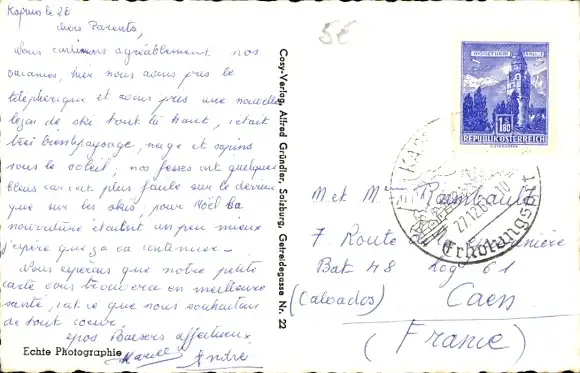 Kaprun le 26
chers Parents,
Nous continuons agréablement nos
vacances, hier nous avons pris le
téléphérique et avons pris une nouvelle
leçon de ski tout là haut, c'était
très beau paysage, nage et sapins
sous le soleil, nos fesses ont quelques
bleus car c'est plus facile sur le derrière
que sur les skis, pour Noël la
nourriture étaient un peu mieux
j'espère que ça va continuer -
Nous espérons que notre petite
carte vous trouvera en meilleure
santé, car ce que nous souhaitons
de tout coeur,
gros Baisers affectueux
Marcel André
Echte Photographie
Cosy-Verlag, Alfred Gründler, Salzburg, Getreidegasse Nr. 22
5€
1.80
REPUBLIK ÖSTERREICH
KAP
27.12.6
10
Erholungsort
M et Mme Raimbault
7 Route
Bat 48 Log 61
(Calvados) Caen
(France)